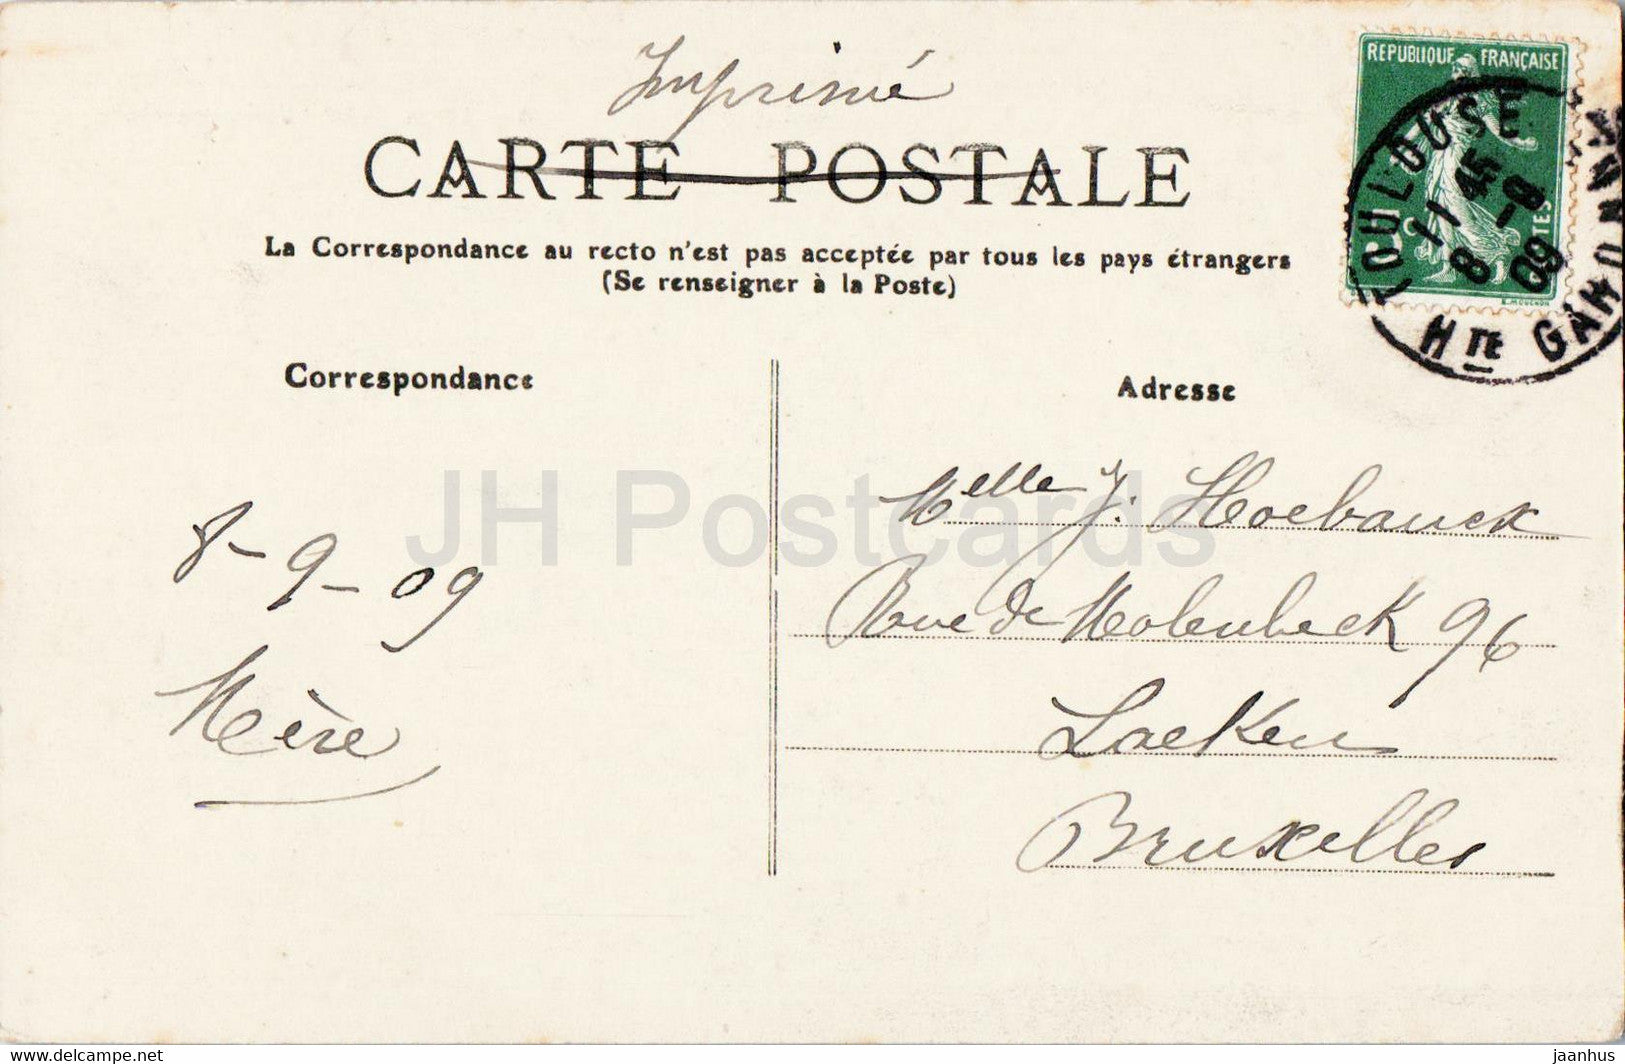 Imprimé
CARTE POSTALE
La Correspondance au recto n'est pas acceptée par tous les pays étrangers
(Se renseigner à la Poste)
REPUBLIQUE FRANÇAISE
TOULOUSE
11 45
8 - 9
09
Hte GARONNE
Correspondance
Adresse
8-9-09
Mère
Melle J. Hoebanck
Rue de Molenbeck 96
Laeken
Bruxelles
JH Postcards
delcampe.net
jaanhus